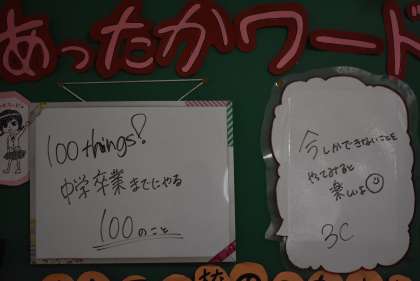 あったかワード
100 things!
中学卒業までにやる
100のこと
今しかできないことを
やってみると
楽しいよ
3C